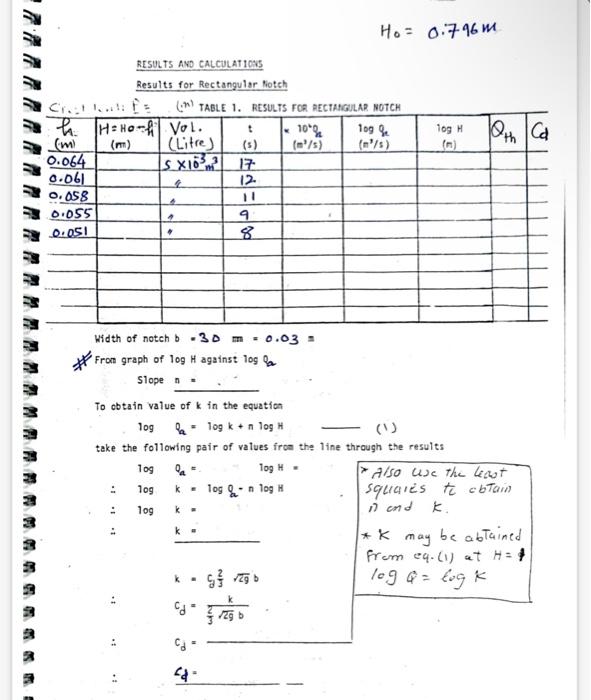 Ho = 0.796 m
RESULTS AND CALCULATIONS
Results for Rectangular Notch
(m) TABLE 1. RESULTS FOR RECTANGULAR NOTCH
h (m) H = Ho - h (m) Vol. (Litre) t (s) 10⁴Qa (m³/s) log Qa (m³/s) log H (m) Qth Cd
0.064 5 x 10⁻³ m³ 17
0.061 " 12
0.058 " 11
0.055 " 9
0.051 " 8
Width of notch b = 30 m = 0.03 m
# From graph of log H against log Qa
Slope n =
To obtain value of k in the equation
log Qa = log k + n log H (1)
take the following pair of values from the line through the results
log Qa = log H =
∴ log k = log Qa - n log H
∴ log k =
∴ k =
* Also use the least
squares to obtain
n and k.
* K may be obtained
from eq.(1) at H = 1
log Q = log K
k = Cd 2/3 √2g b
∴ Cd = k / (2/3 √2g b)
∴ Cd =
∴ Cd =